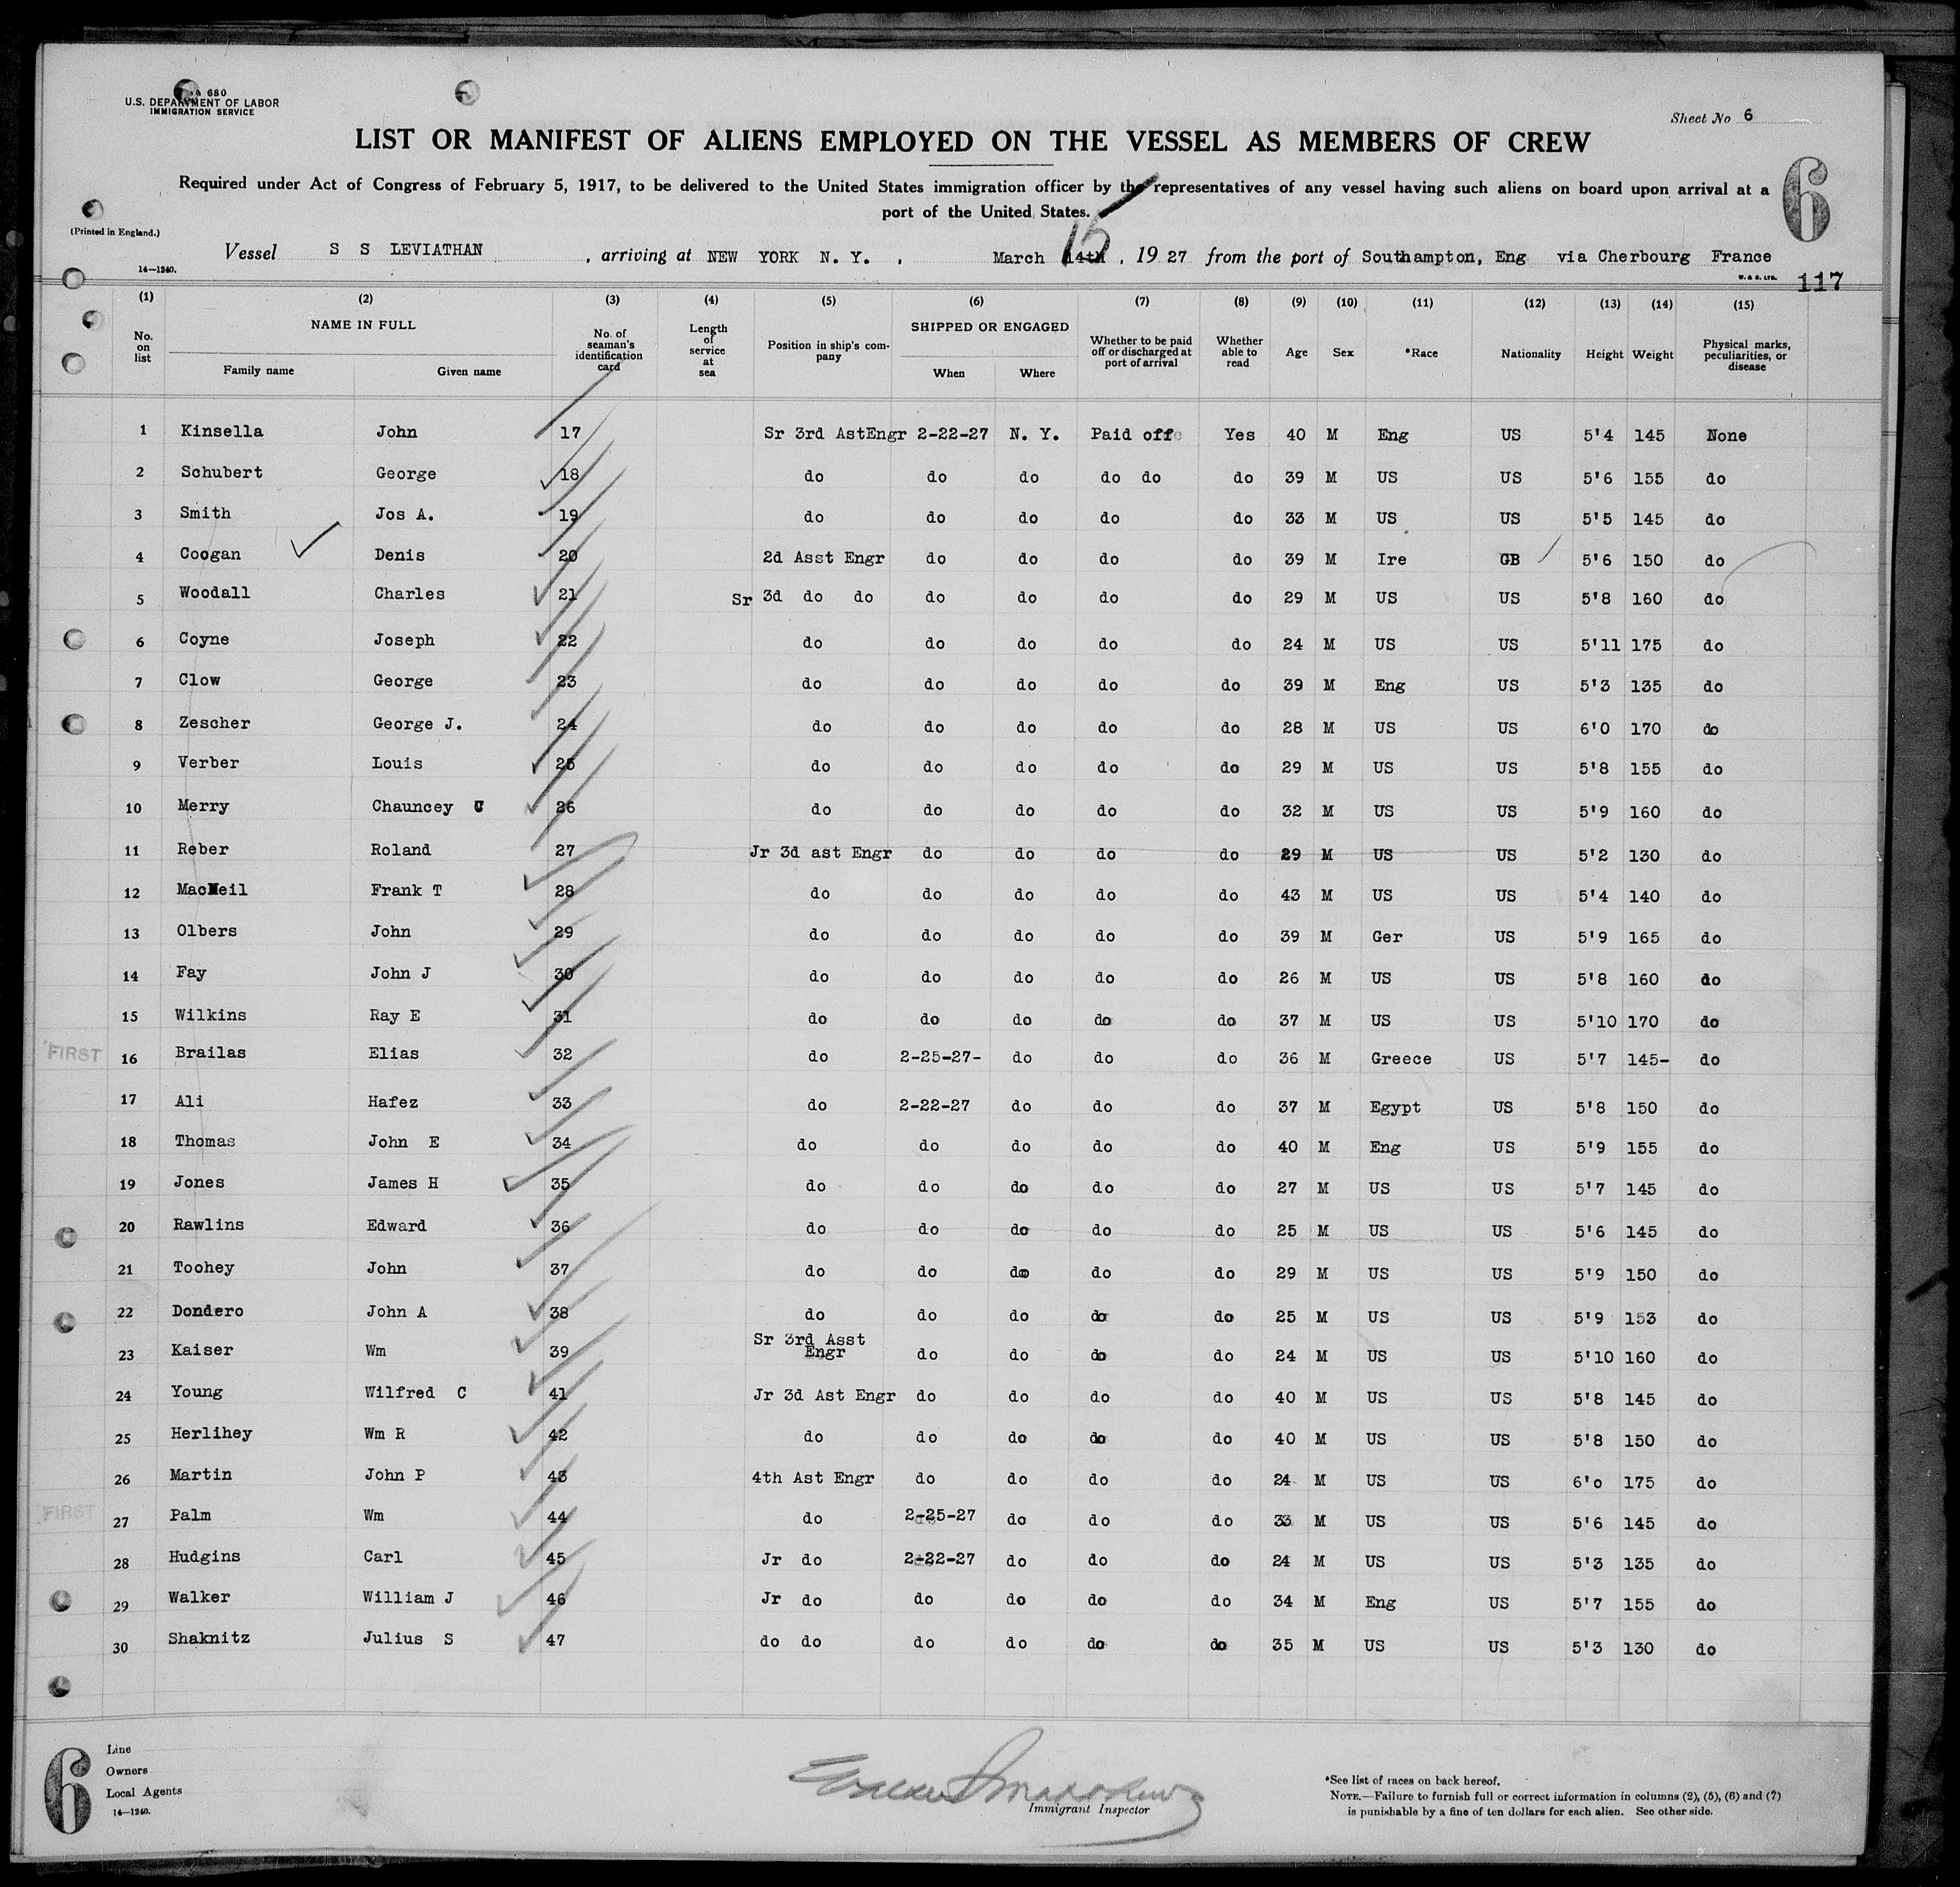 680
U.S. DEPARTMENT OF LABOR
IMMIGRATION SERVICE
Sheet No 6
LIST OR MANIFEST OF ALIENS EMPLOYED ON THE VESSEL AS MEMBERS OF CREW
Required under Act of Congress of February 5, 1917, to be delivered to the United States immigration officer by the representatives of any vessel having such aliens on board upon arrival at a
port of the United States.
6
(Printed in England.)
15
Vessel S S LEVIATHAN , arriving at NEW YORK N. Y. , March 14th , 19 27 from the port of Southampton, Eng via Cherbourg France
14—1240.
W. & S. LTD.
117
(1) (2) (3) (4) (5) (6) (7) (8) (9) (10) (11) (12) (13) (14) (15)
No. on list NAME IN FULL Family name Given name No. of seaman's identification card Length of service at sea Position in ship's company SHIPPED OR ENGAGED When Where Whether to be paid off or discharged at port of arrival Whether able to read Age Sex *Race Nationality Height Weight Physical marks, peculiarities, or disease
1 Kinsella John 17 Sr 3rd AstEngr 2-22-27 N. Y. Paid off Yes 40 M Eng US 5'4 145 None
2 Schubert George 18 do do do do do do 39 M US US 5'6 155 do
3 Smith Jos A. 19 do do do do do 33 M US US 5'5 145 do
4 Coogan Denis 20 2d Asst Engr do do do do 39 M Ire GB 5'6 150 do
5 Woodall Charles 21 Sr 3d do do do do do do 29 M US US 5'8 160 do
6 Coyne Joseph 22 do do do do do 24 M US US 5'11 175 do
7 Clow George 23 do do do do do 39 M Eng US 5'3 135 do
8 Zescher George J. 24 do do do do do 28 M US US 6'0 170 do
9 Verber Louis 25 do do do do do 29 M US US 5'8 155 do
10 Merry Chauncey 26 do do do do do 32 M US US 5'9 160 do
11 Reber Roland 27 Jr 3d ast Engr do do do do 29 M US US 5'2 130 do
12 MacNeil Frank T 28 do do do do do 43 M US US 5'4 140 do
13 Olbers John 29 do do do do do 39 M Ger US 5'9 165 do
14 Fay John J 30 do do do do do 26 M US US 5'8 160 do
15 Wilkins Ray E 31 do do do do do 37 M US US 5'10 170 do
FIRST 16 Brailas Elias 32 do 2-25-27- do do do 36 M Greece US 5'7 145- do
17 Ali Hafez 33 do 2-22-27 do do do 37 M Egypt US 5'8 150 do
18 Thomas John E 34 do do do do do 40 M Eng US 5'9 155 do
19 Jones James H 35 do do do do do 27 M US US 5'7 145 do
20 Rawlins Edward 36 do do do do do 25 M US US 5'6 145 do
21 Toohey John 37 do do do do do 29 M US US 5'9 150 do
22 Dondero John A 38 do do do do do 25 M US US 5'9 153 do
23 Kaiser Wm 39 Sr 3rd Asst Engr do do do do 24 M US US 5'10 160 do
24 Young Wilfred C 41 Jr 3d Ast Engr do do do do 40 M US US 5'8 145 do
25 Herlihey Wm R 42 do do do do do 40 M US US 5'8 150 do
26 Martin John P 43 4th Ast Engr do do do do 24 M US US 6'o 175 do
FIRST 27 Palm Wm 44 do 2-25-27 do do do 33 M US US 5'6 145 do
28 Hudgins Carl 45 Jr do 2-22-27 do do do 24 M US US 5'3 135 do
29 Walker William J 46 Jr do do do do do 34 M Eng US 5'7 155 do
30 Shaknitz Julius S 47 do do do do do do 35 M US US 5'3 130 do
6
Line
Owners
Local Agents
14—1240.
Immigrant Inspector
*See list of races on back hereof.
NOTE.—Failure to furnish full or correct information in columns (2), (5), (6) and (7)
is punishable by a fine of ten dollars for each alien. See other side.